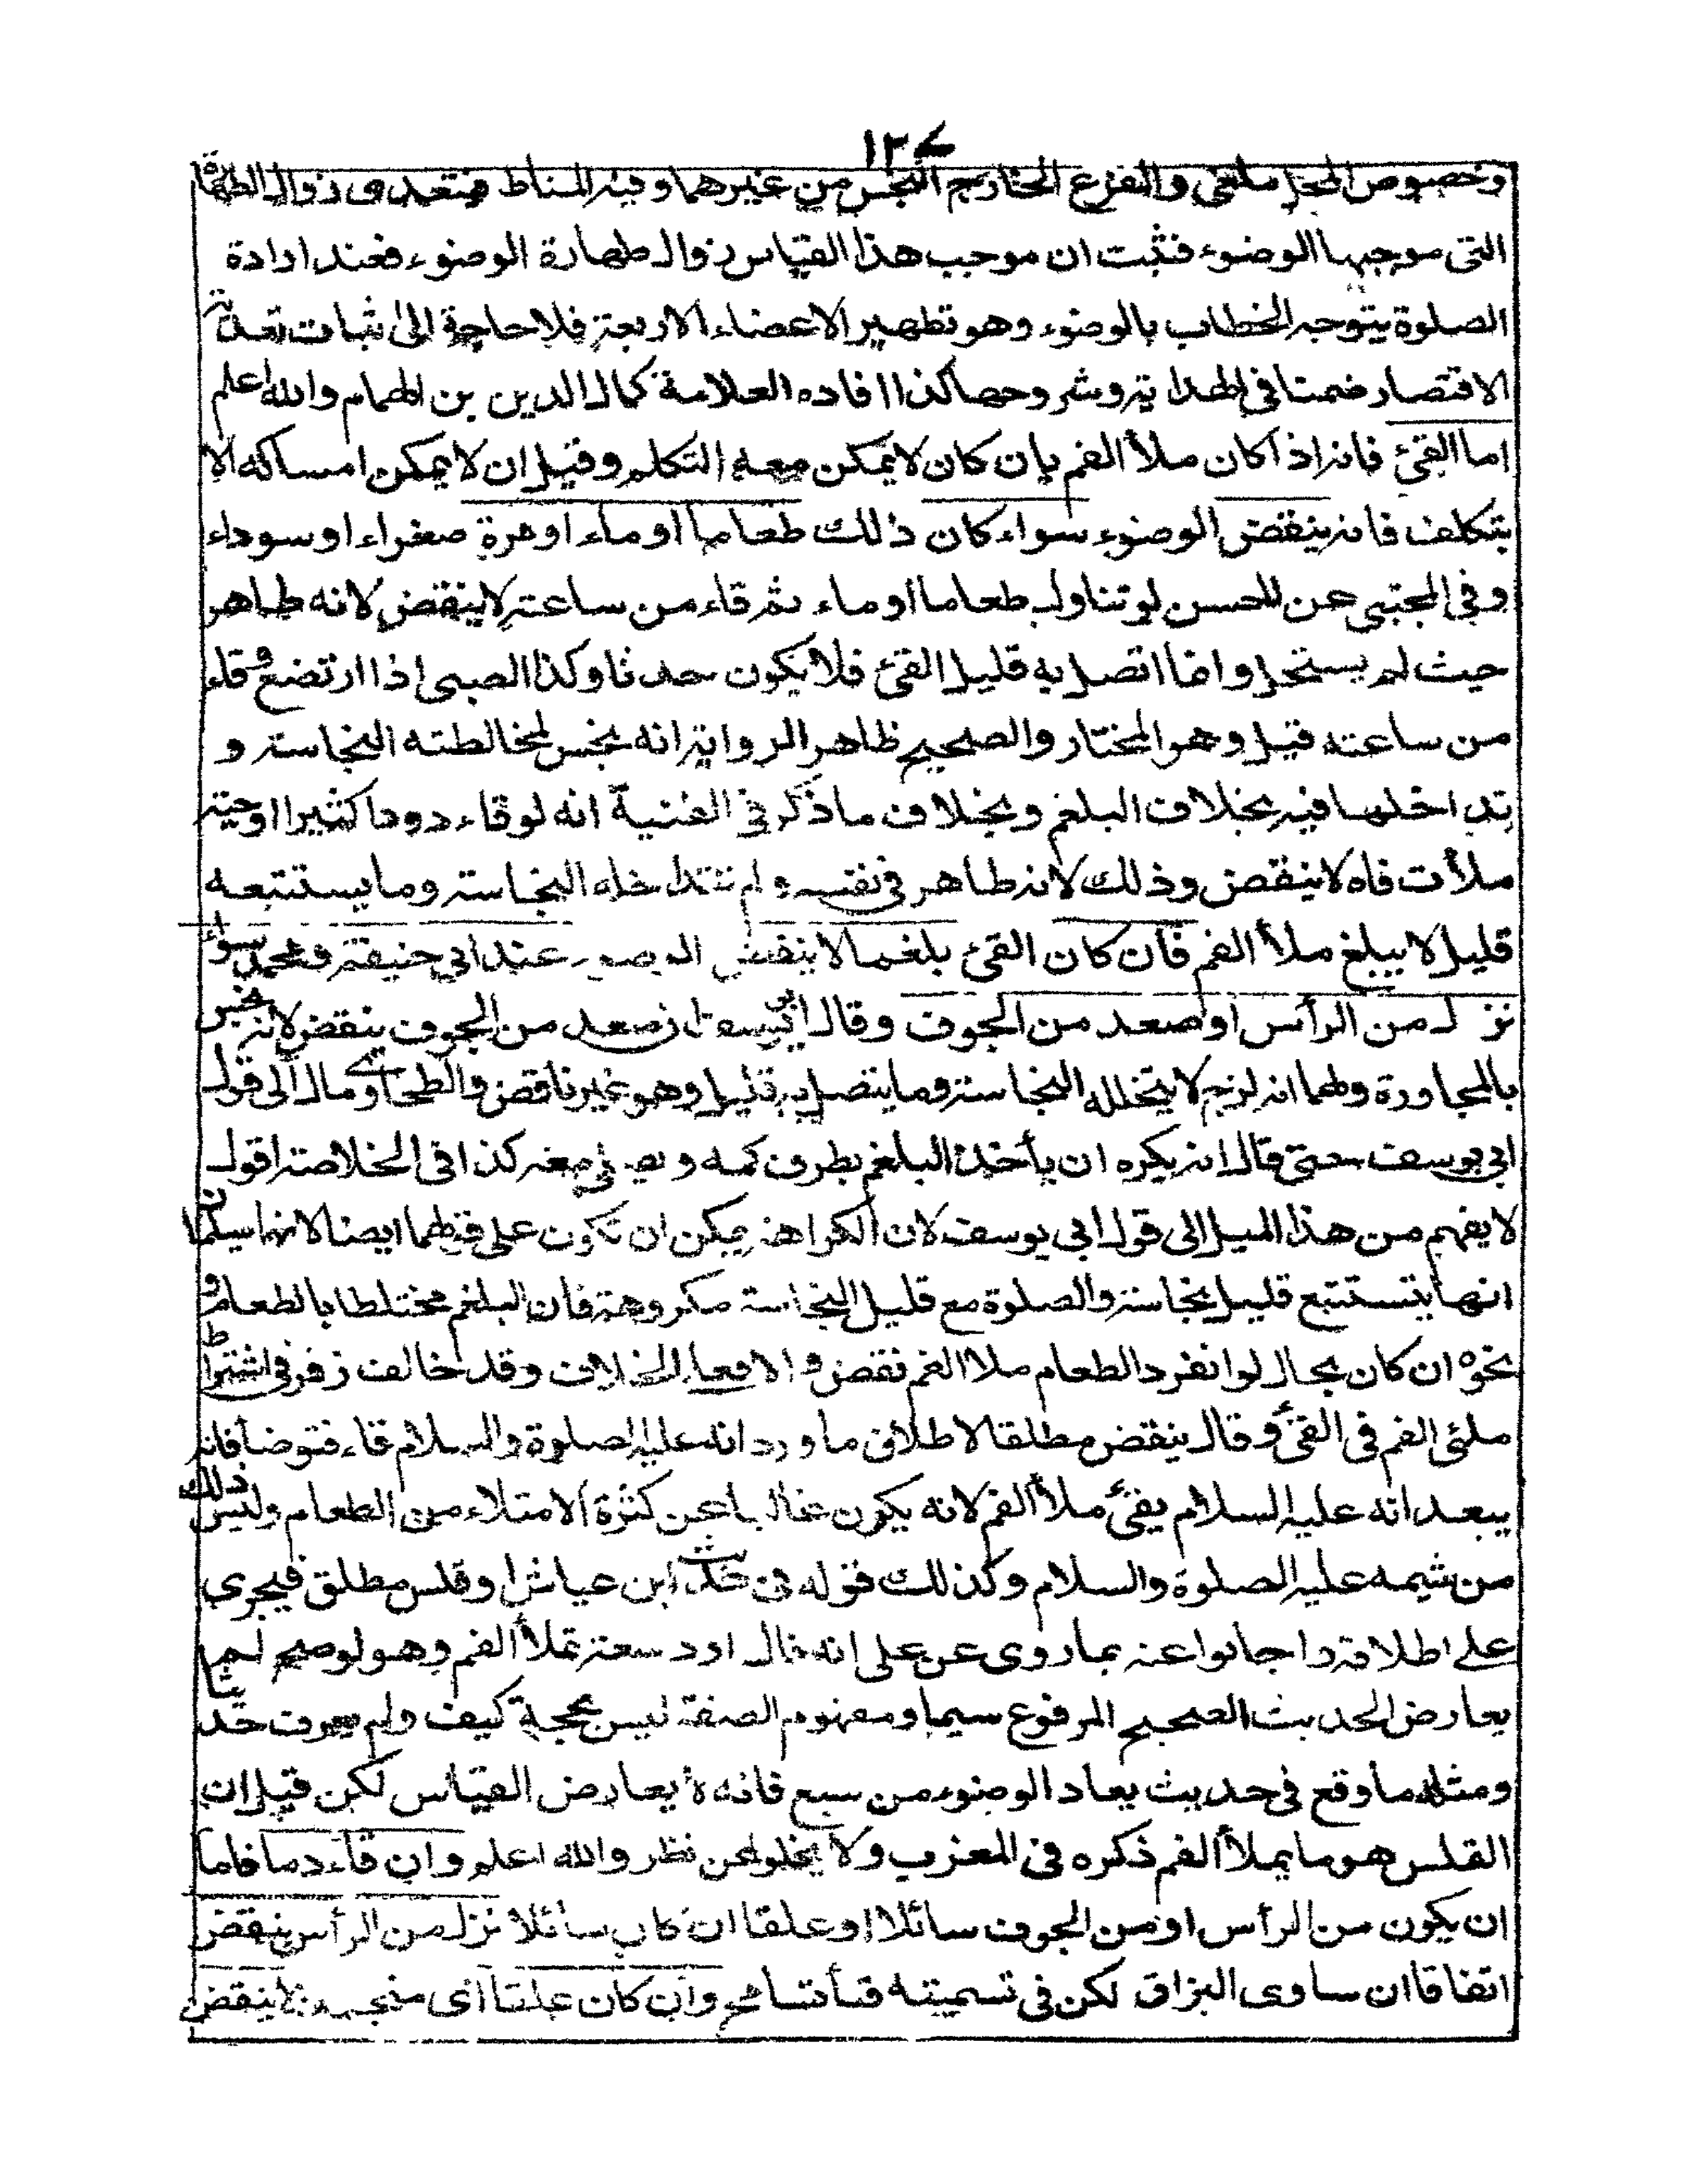 ١٢٧
وخصوص المحل ملغى والفرع الخارج النجس من غيرهما وفيه المناط فيتعدى زوال الطهارة
التى موجبها الوضوء فثبت ان موجب هذا القياس زوال طهارة الوضوء فعند ارادة
الصلوة يتوجه الخطاب بالوضوء وهو تطهير الاعضاء الاربعة فلا حاجة الى ثبات تعدية
الاقتصار ضمنا فى الهداية وشروحها كذا افاده العلامة كمال الدين بن الهمام والله اعلم
اما القئ فانه اذا كان ملأ الفم بان كان لا يمكن معه التكلم وقيل ان لا يمكن امساكه الا
بتكلف فانه ينقض الوضوء سواء كان ذلك طعاما او ماء او مرة صفراء او سوداء
وفى المجتبى عن الحسن لو تناول طعاما او ماء ثم قاء من ساعته لا ينقض لانه طاهر
حيث لم يستحل وانما اتصل به قليل القئ فلا يكون حدثا وكذا الصبى اذا ارتضع وقاء
من ساعته قيل وهو المختار والصحيح ظاهر الرواية انه نجس لمخالطته النجاسة و
تداخلها فيه بخلاف البلغم وبخلاف ما ذكر فى القنية انه لو قاء دودا كثيرا او حية
ملأت فاه لا ينقض وذلك لانه طاهر فى نفسه ولم تتداخله النجاسة وما يستتبعه
قليل لا يبلغ ملأ الفم فان كان القئ بلغما لا ينقض الوضوء عند ابى حنيفة ومحمد سواء
نزل من الرأس او صعد من الجوف وقال ابو يوسف ان صعد من الجوف ينقض لانه نجس
بالمجاورة ولهما انه لزج لا يتخلله النجاسة وما يتصل به قليل وهو غير ناقض والطحاوى مال الى قول
ابى يوسف حتى قال انه يكره ان يأخذ البلغم بطرف كمه ويصلى معه كذا فى الخلاصة اقول
لا يفهم من هذا الميل الى قول ابى يوسف لان الكراهة يمكن ان تكون على قولهما ايضا لانهما سيكمان
انها يتستتبع قليل نجاسة والصلوة مع قليل النجاسة مكروهة فان البلغم مختلطا بالطعام و
نحوه ان كان بحال لو انفرد الطعام ملا الفم نقض والا فعلى الخلاف وقد خالف زفر فى اشتراط
ملئى الفم فى القئ وقال ينقض مطلقا لاطلاق ما ورد انه عليه الصلوة والسلام قاء فتوضأ فانه
يبعد انه عليه السلام يقئ ملأ الفم لانه يكون غالبا عن كثرة الامتلاء من الطعام وليس ذلك
من شيمه عليه الصلوة والسلام وكذلك قوله فى حديث ابن عياش او قلس مطلق فيجرى
على اطلاقه واجابوا عنه بما روى عن على انه قال اودسعة تملأ الفم وهو لو صح لم
يعارض الحديث الصحيح المرفوع سيما ومفهوم الصفة ليس بحجة كيف ولم يعرف حديثا
ومثله ما وقع فى حديث يعاد الوضوء من سبع فانه لا يعارض القياس لكن قيل ان
القلس هو ما يملأ الفم ذكره فى المغرب ولا يخلو عن نظر والله اعلم وان قاء دما فاما
ان يكون من الرأس او من الجوف سائلا او علقا ان كان سائلا نزل من الرأس ينقض
اتفاقا ان ساوى البزاق لكن فى تسميته قيأ تسامح وان كان علقا اى منجمدا لا ينقض